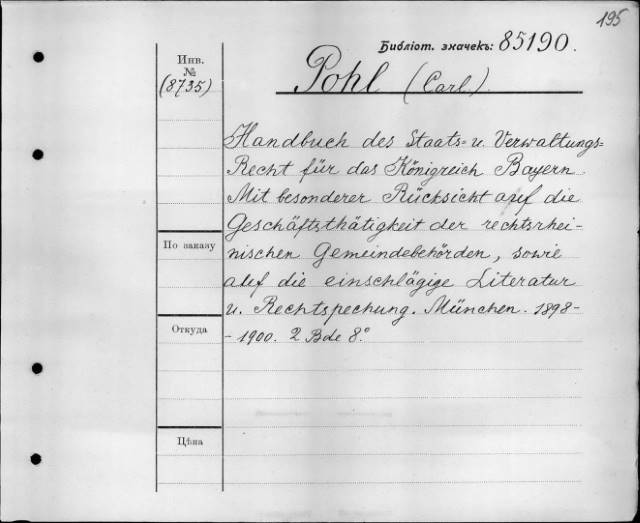 195
Библіот. значекъ: 85190.
Инв.
№
(8735)
Pohl (Carl.)
Handbuch des Staats= u. Verwaltungs=
Recht für das Königreich Bayern
Mit besonderer Rücksicht auf die
Geschäftsthätigkeit der rechtsrhei-
nischen Gemeindebehörden, sowie
auf die einschlägige Literatur
u. Rechtspechung. München. 1898-
- 1900. 2 Bde 8.°
По заказу
Откуда
Цѣна